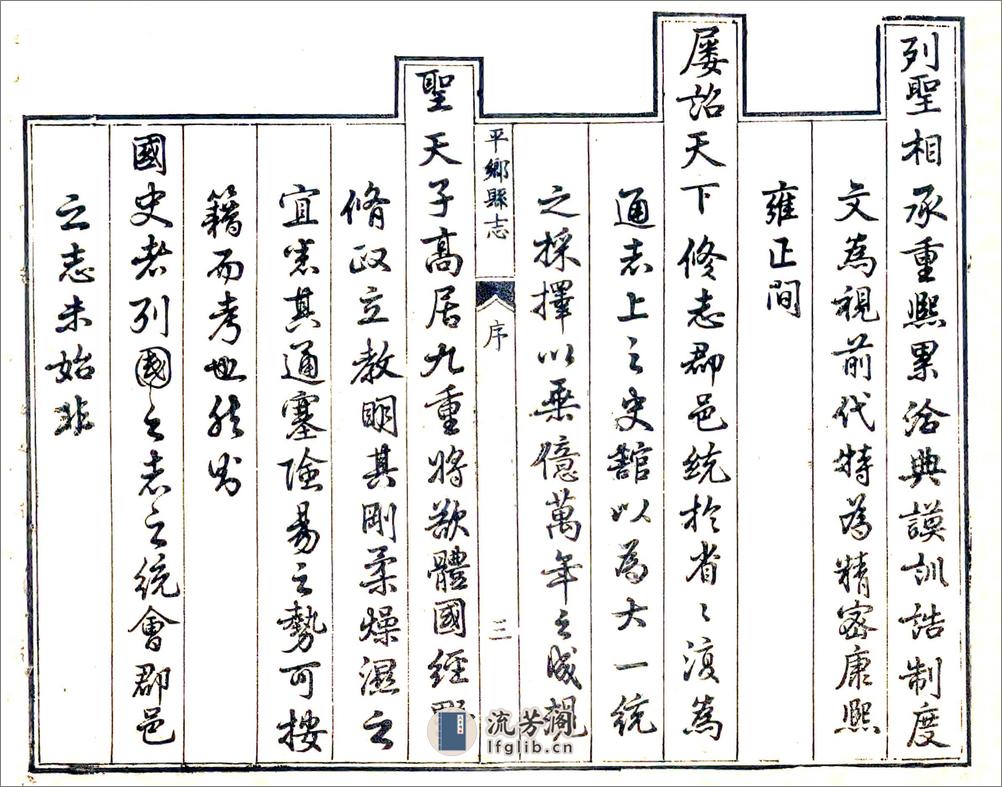 列聖相承重熙累洽典謨訓誥制度
文為視前代特為精密康熙
雍正間
屢詔天下修志郡邑統於省〻復為
通志上之史館以為大一統
之採擇以垂億萬年之盛規
平鄉縣志
序
三
聖天子高居九重將欲體國經野
脩政立教明其剛柔燥濕之
宜悉其通塞險易之勢可按
籍而考也然則
國史者列國之志之統會郡邑
之志未始非
流芳阁
lfglib.cn